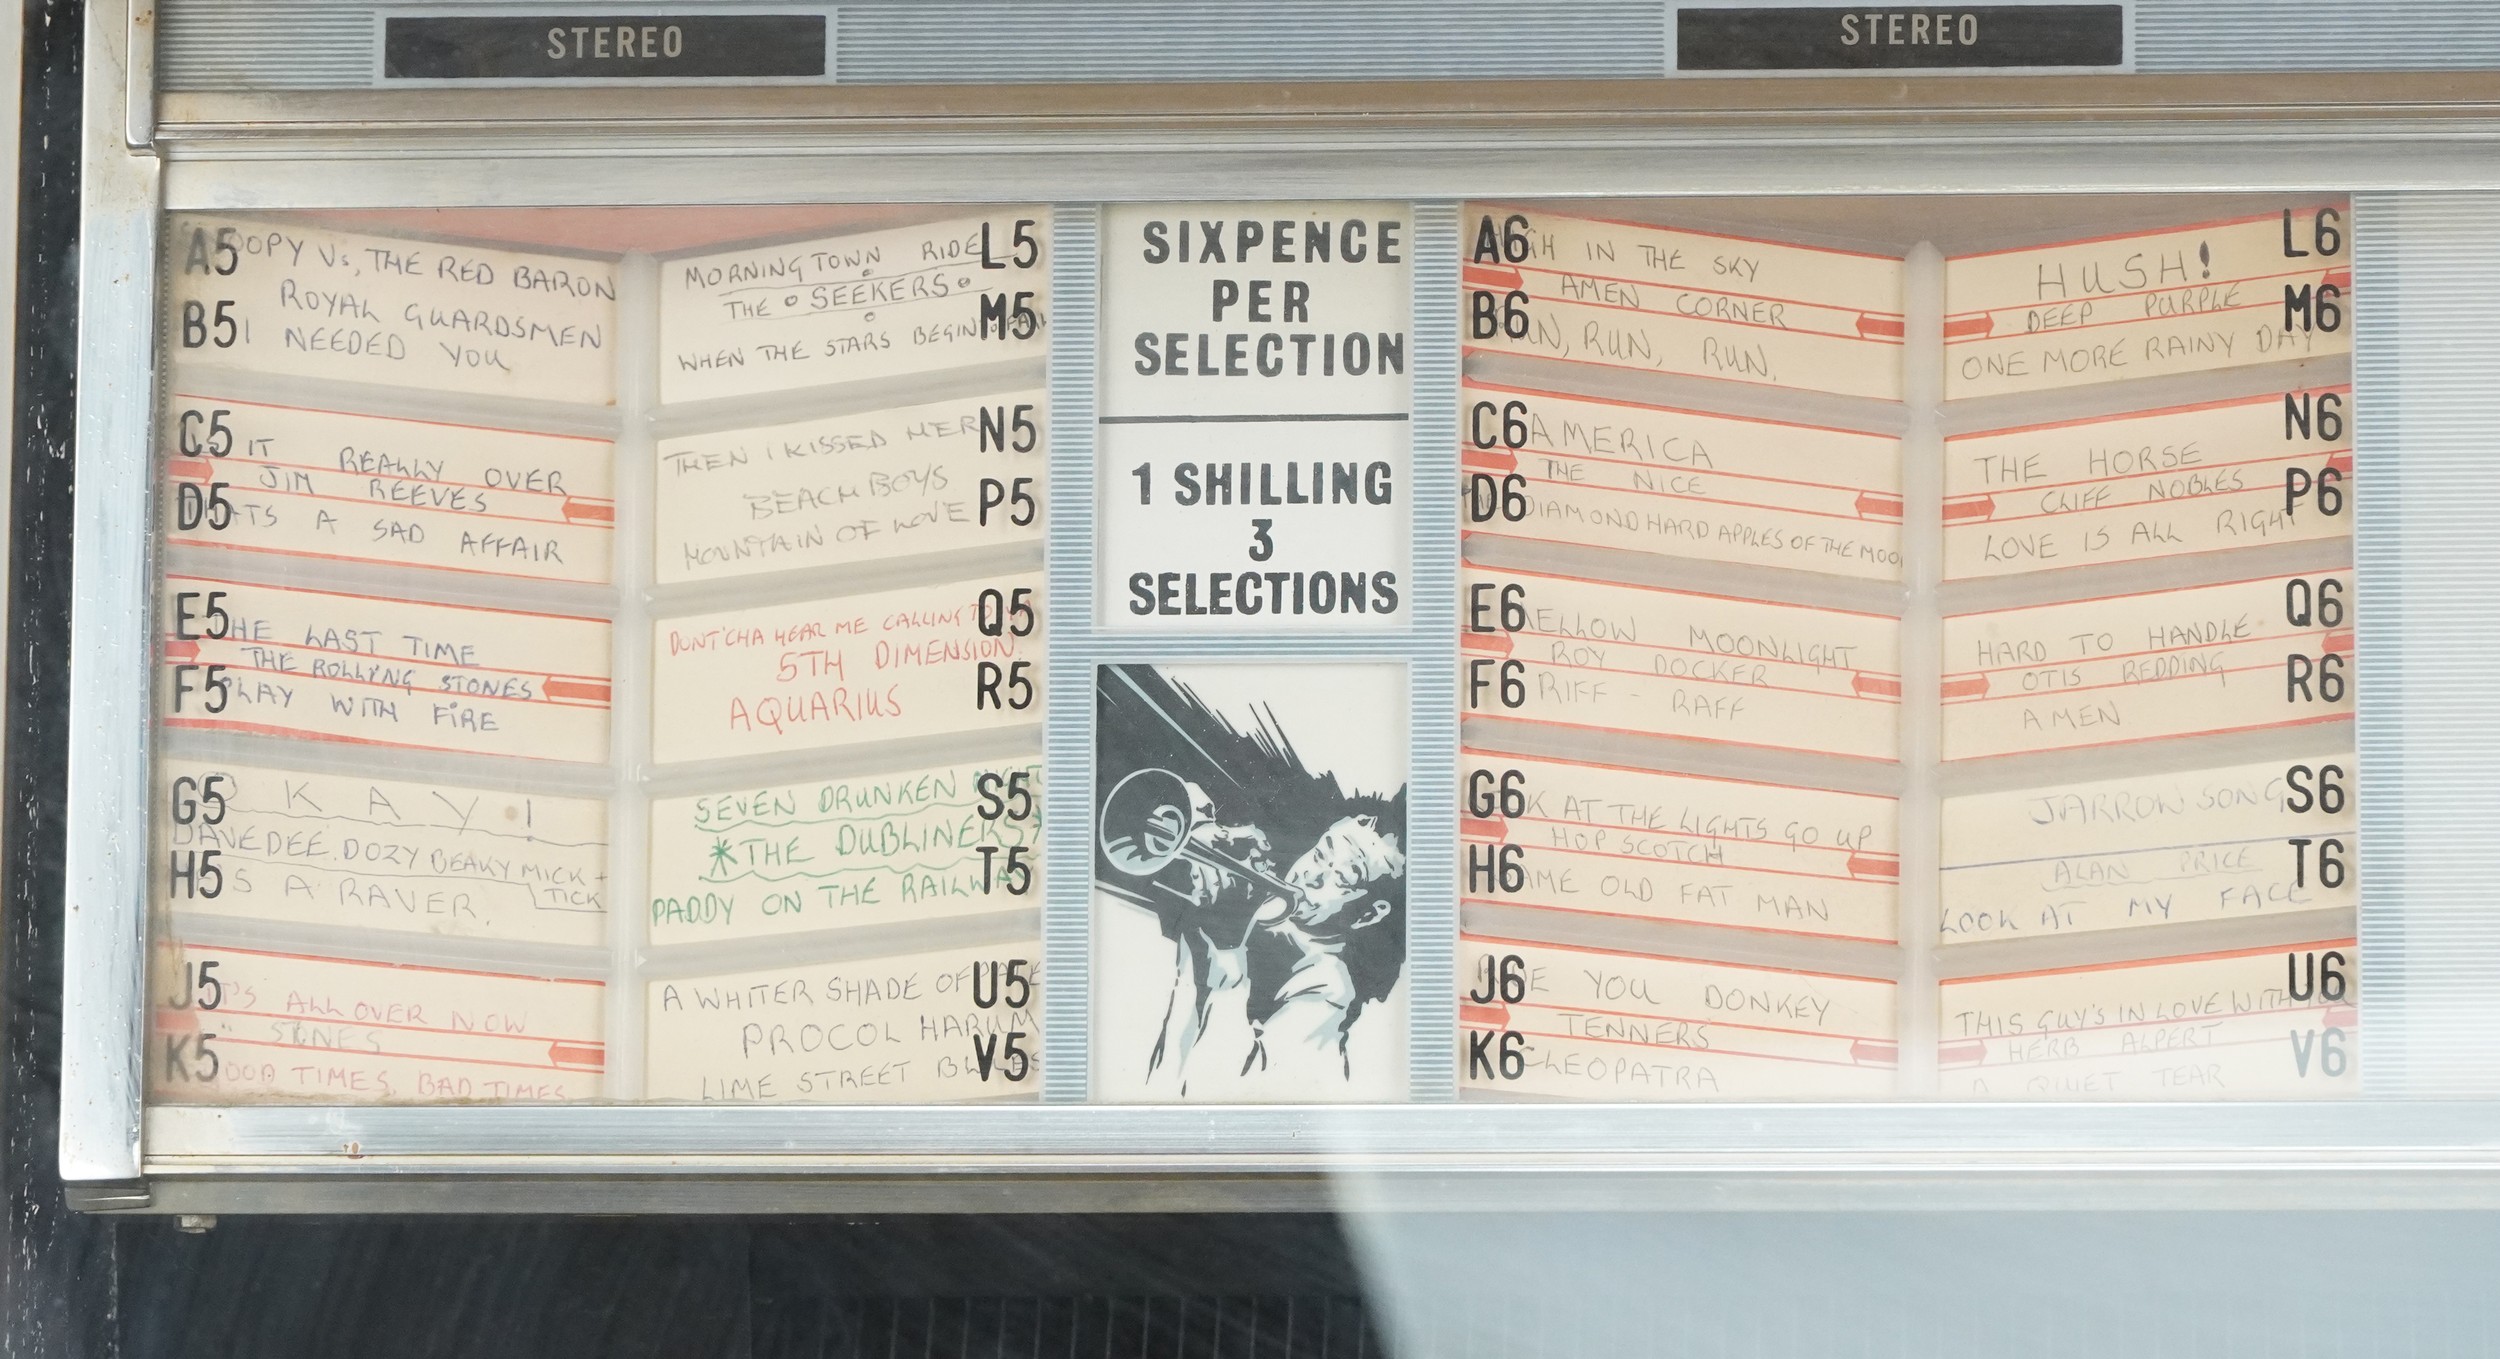 STEREO
STEREO
A5
OOPY Vs, THE RED BARON
ROYAL GUARDSMEN
B5
I NEEDED YOU
C5
IT REALLY OVER
JIM REEVES
D5
ATS A SAD AFFAIR
E5
HE LAST TIME
THE ROLLYNG STONES
F5
PLAY WITH FIRE
G5
O KAY!
DAVE DEE. DOZY BEAKY MICK +
TICK
H5
S A RAVER.
J5
T'S ALL OVER NOW
" STONES
K5
OOD TIMES, BAD TIMES
L5
MORNING TOWN RIDE
THE SEEKERS
M5
WHEN THE STARS BEGIN TO FALL
N5
THEN I KISSED HER
BEACH BOYS
P5
MOUNTAIN OF LOVE
Q5
DONT'CHA HEAR ME CALLING TO YA
5TH DIMENSION
R5
AQUARIUS
S5
SEVEN DRUNKEN NIGHT
*THE DUBLINERS*
T5
PADDY ON THE RAILWA
U5
A WHITER SHADE OF PALE
PROCOL HARUM
V5
LIME STREET BLUES
SIXPENCE
PER
SELECTION
1 SHILLING
3
SELECTIONS
A6
IGH IN THE SKY
AMEN CORNER
B6
RUN, RUN, RUN.
C6
AMERICA
THE NICE
D6
DIAMOND HARD APPLES OF THE MOO
E6
MELLOW MOONLIGHT
ROY DOCKER
F6
RIFF - RAFF
G6
OK AT THE LIGHTS GO UP
HOP SCOTCH
H6
SAME OLD FAT MAN
J6
DE YOU DONKEY
TENNERS
K6
CLEOPATRA
L6
HUSH!
DEEP PURPLE
M6
ONE MORE RAINY DAY
N6
THE HORSE
CLIFF NOBLES
P6
LOVE IS ALL RIGHT
Q6
HARD TO HANDLE
OTIS REDDING
R6
AMEN
S6
JARROW SONG
ALAN PRICE
T6
LOOK AT MY FACE
U6
THIS GUY'S IN LOVE WITH YOU
HERB ALPERT
V6
A QUIET TEAR